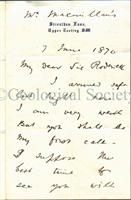 Mr. Macmillan's
Streatham Lane,
Upper Tooting
7 June 1870
My dear Sir Roderick
I arrived safe
last night
I am very
But you shall be
my first call.
I suppose the
best time to
see you will
Geological Society